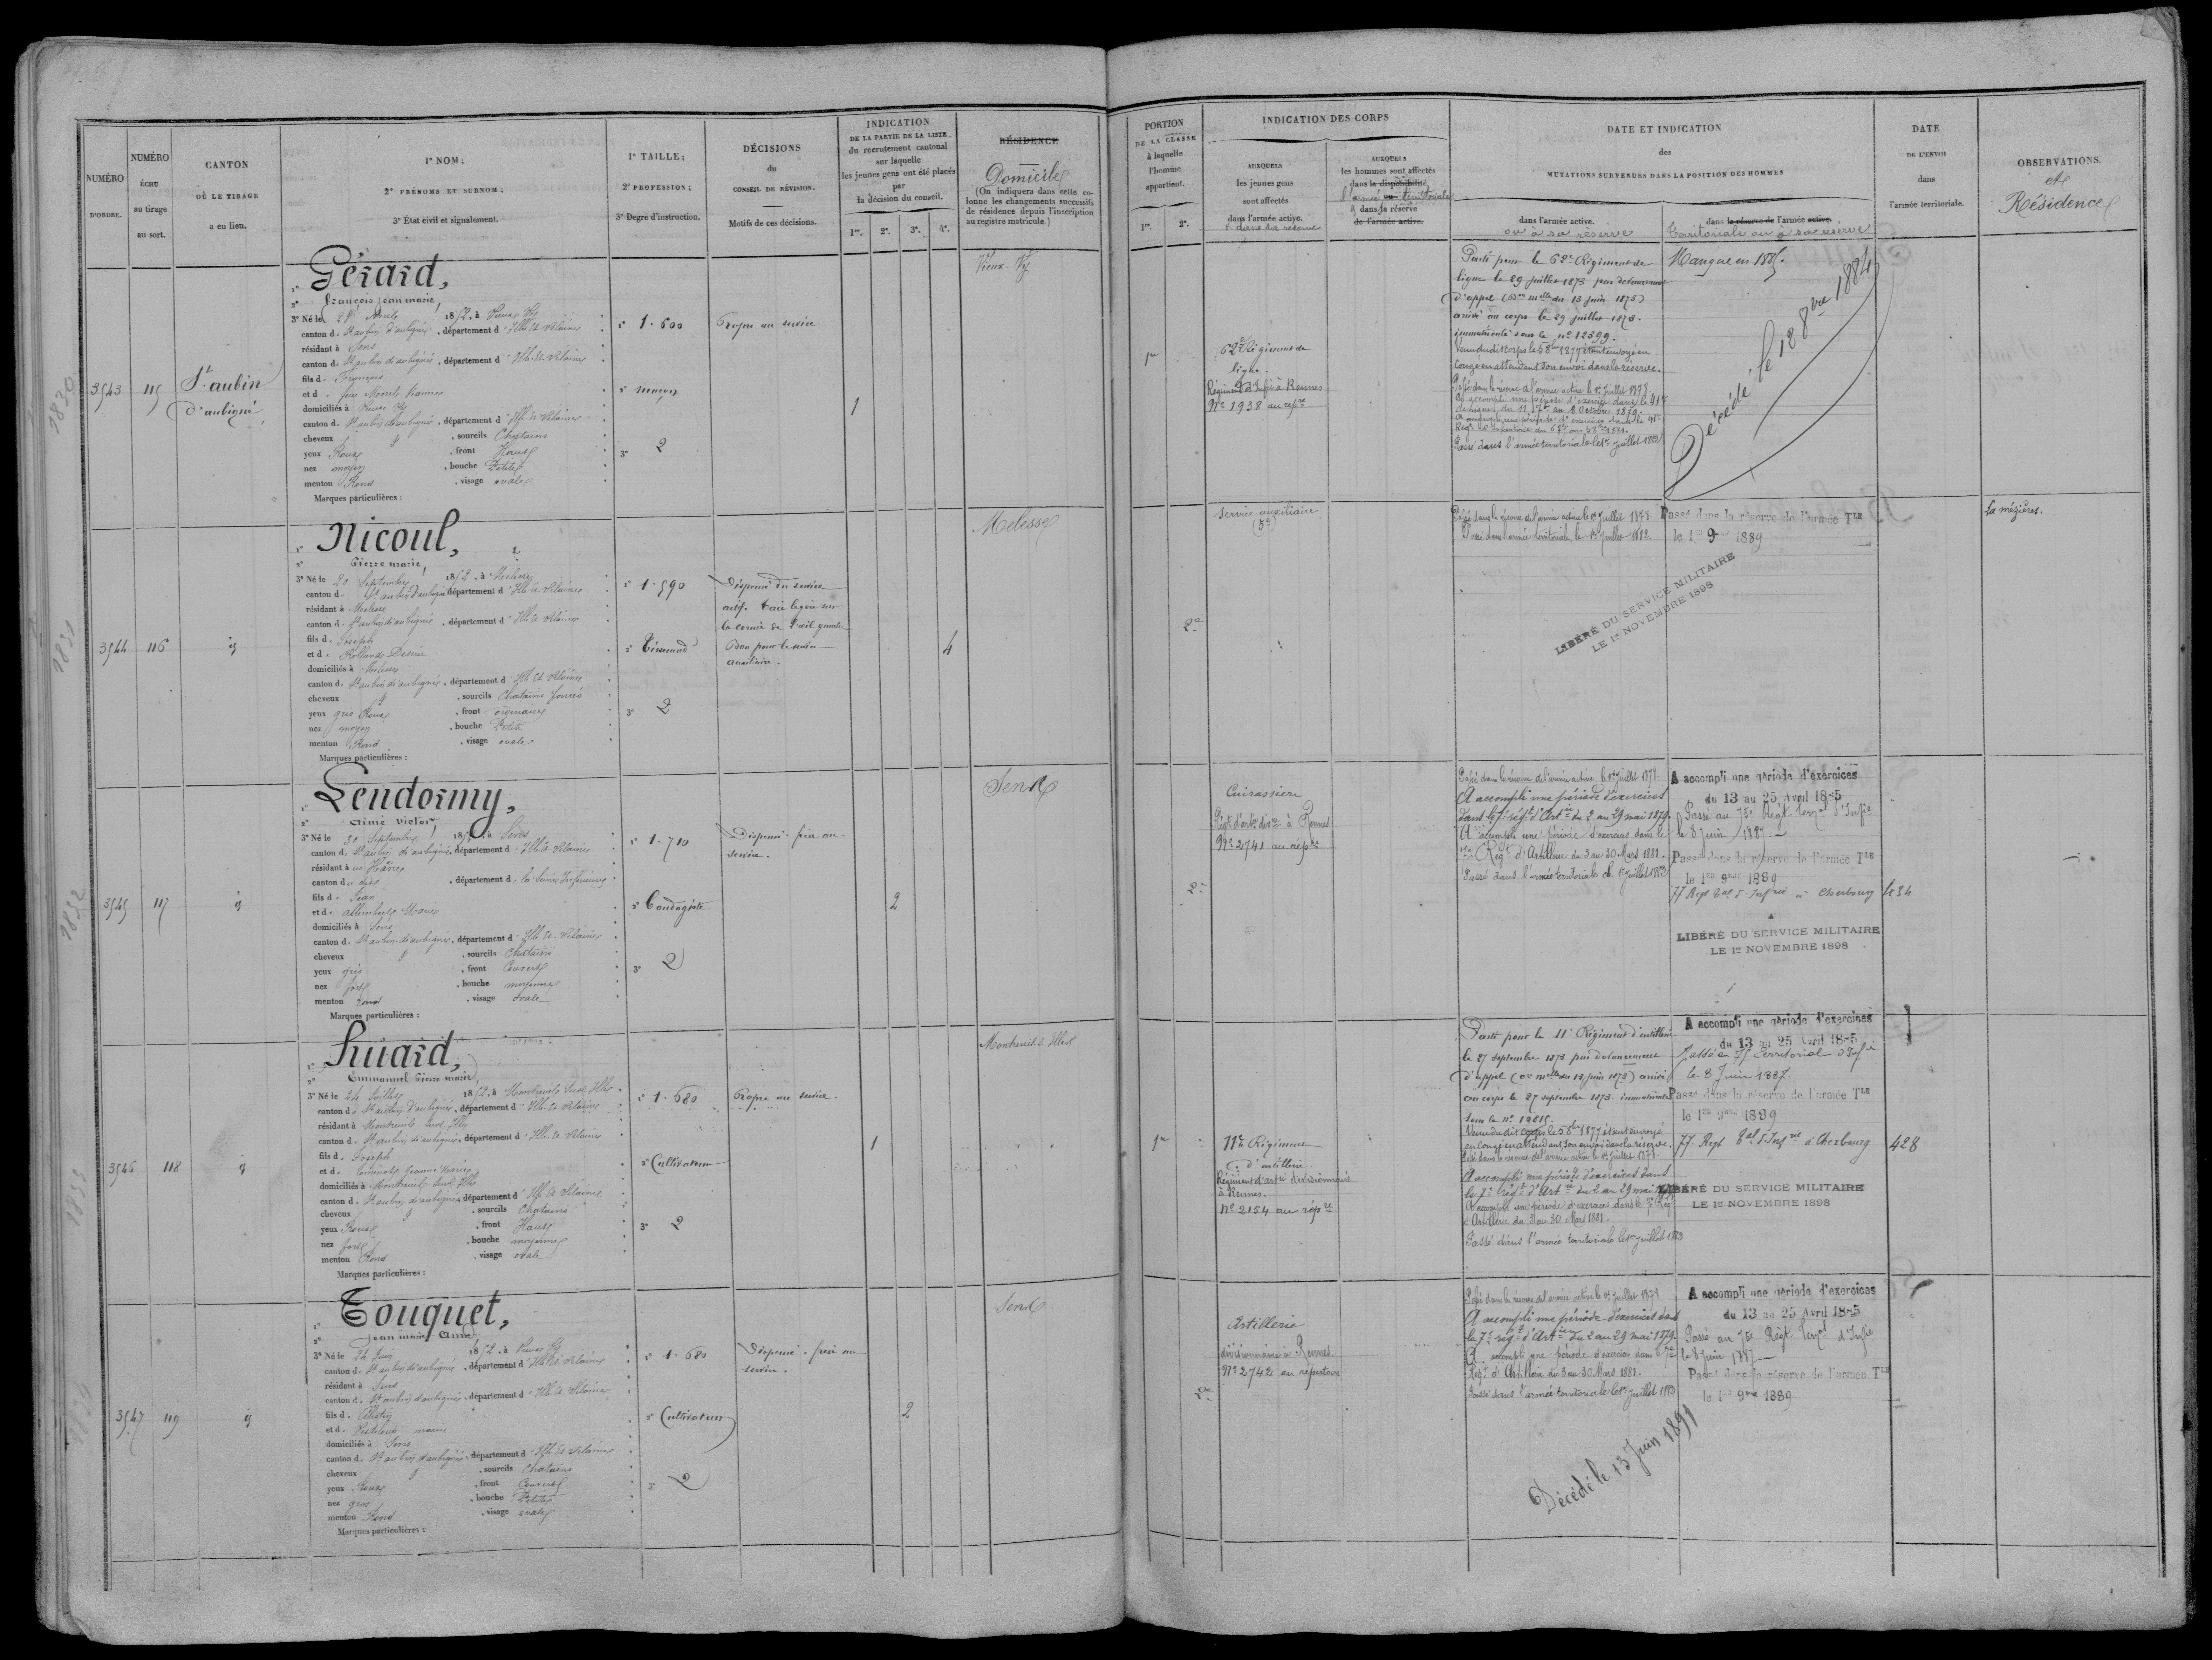 NUMÉRO
D'ORDRE.
NUMÉRO
ÉCHU
au tirage
au sort.
CANTON
OÙ LE TIRAGE
a eu lieu.
1º NOM;
2º PRÉNOMS ET SURNOM;
3º État civil et signalement.
1º TAILLE;
2º PROFESSION;
3º Degré d'instruction.
DÉCISIONS
du
CONSEIL DE RÉVISION.
Motifs de ces décisions.
INDICATION
DE LA PARTIE DE LA LISTE
du recrutement cantonal
sur laquelle
les jeunes gens ont été placés
par
la décision du conseil.
1re. 2e. 3e. 4e.
RÉSIDENCE
Domicile
(On indiquera dans cette co-
lonne les changements successifs
de résidence depuis l'inscription
au registre matricule.)
PORTION
DE LA CLASSE
à laquelle
l'homme
appartient.
1re. 2e.
INDICATION DES CORPS
AUXQUELS
les jeunes gens
sont affectés
dans l'armée active.
& dans sa réserve
AUXQUELS
les hommes sont affectés
dans la disponibilité
l'armée territoriale
dans la réserve
de l'armée active.
DATE ET INDICATION
des
MUTATIONS SURVENUES DANS LA POSITION DES HOMMES
dans l'armée active.
ou à sa réserve
dans la réserve de l'armée active.
territoriale ou à sa réserve
DATE
DE L'ENVOI
dans
l'armée territoriale.
OBSERVATIONS.
et
Résidence
3543
115
St aubin
d'aubigné
Gérard,
2º François jean marie,
3º Né le 28 1852, à Vieux Vy
canton d. St aubin d'aubigné, département d' Ille et Vilaine
résidant à Sens
canton d. St aubin d'aubigné, département d' Ille et Vilaine
fils d. François
et d.
domiciliés à Vieux Vy
canton d. St aubin d'aubigné, département d' Ille et Vilaine
cheveux & , sourcils Chatains
yeux Roux , front Haut
nez moyen , bouche Petite
menton Rond , visage ovale
Marques particulières :
1º 1.600
2º maçon
3º 2
Propre au service
1
Vieux-Vy
1re
62e Régiment de
ligne.
Régiment d'Infie à Rennes
No 1938 au repre
Parti pour le 62e Régiment de
ligne le 29 juillet 1873 par devancement
d'appel (Don mlle du 13 juin 1873)
arrivé au corps le 29 juillet 1873.
immatriculé sous le no 12399.
Venu dudit corps le 5 8bre 1877 étant envoyé en
Congé en attendant son envoi dans la réserve.
Passé dans la réserve de l'armée active le 1er juillet 1878
A accompli une période d'exercices dans le 41e
de ligne du 11 7bre au 8 octobre 1879.
Passé dans l'armée territoriale le 1er juillet 1882
Manque en 1885.
Décédé le 12 8bre 1884
3544
116
id
Nicoul,
2º Pierre marie,
3º Né le 20 Septembre 1852, à Melesse
canton d. St aubin d'aubigné, département d' Ille et Vilaine
résidant à Melesse
canton d. St aubin d'aubigné, département d' Ille et Vilaine
fils d. Joseph
et d. Rolland Desirée
domiciliés à Melesse
canton d. St aubin d'aubigné, département d' Ille et Vilaine
cheveux & , sourcils Chatains foncés
yeux gris Roux , front ordinaire
nez moyen , bouche Petite
menton Rond , visage ovale
Marques particulières :
1º 1.590
2º Tisserand
3º 2
Dispensé du service
actif. Taie légère sur
la cornée de l'œil gauche
Bon pour le service
auxiliaire.
4
Melesse
2e
Service auxiliaire
Passé dans la réserve de l'armée active le 1er juillet 1878
Passé dans l'armée territoriale le 1er juillet 1882
Passé dans la réserve de l'armée Tle
le 1er 9bre 1889
LIBÉRÉ DU SERVICE MILITAIRE
LE 1er NOVEMBRE 1898
la mézières.
3545
117
id
Lendormy,
2º aimé victor,
3º Né le 30 Septembre 1852, à Sens
canton d. St aubin d'aubigné, département d' Ille et Vilaine
résidant au Hâvre
canton du dit , département d. la Seine Inférieure
fils d. Jean
et d. Marie
domiciliés à Sens
canton d. St aubin d'aubigné, département d' Ille et Vilaine
cheveux & , sourcils Chatains
yeux gris , front Couvert
nez fort , bouche moyenne
menton rond , visage ovale
Marques particulières :
1º 1.710
2º Bandagiste
3º 2
Dispensé: frère au
service.
2
Sens
2e
Cuirassiers
Régt d'artie divre à Rennes
No 2741 au répre
Passé dans la réserve de l'armée active le 1er juillet 1878
A accompli une période d'exercices
dans le 7e régt d'Artie du 2 au 29 mai 1879.
A accompli une période d'exercices dans le
7e Régt d'Artillerie du 3 au 30 Mars 1881.
Passé dans l'armée territoriale le 1er juillet 1882
A accompli une période d'exercices
du 13 au 25 Avril 1885
Passé au 75e Régt terral d'Infie
le 8 juin 1887
Passé dans la réserve de l'armée Tle
le 1er 9bre 1889
77 Regt tal d'Infrie à Cherbourg
LIBÉRÉ DU SERVICE MILITAIRE
LE 1er NOVEMBRE 1898
3546
118
id
Huard,
2º Emmanuel Pierre marie,
3º Né le 24 Juillet 1852, à Montreuil sur Ille
canton d. St aubin d'aubigné, département d' Ille et Vilaine
résidant à Montreuil sur Ille
canton d. St aubin d'aubigné, département d' Ille et Vilaine
fils d. Joseph
et d. Jeanne Marie
domiciliés à Montreuil sur Ille
canton d. St aubin d'aubigné, département d' Ille et Vilaine
cheveux & , sourcils Chatains
yeux Roux , front Haut
nez fort , bouche moyenne
menton Rond , visage ovale
Marques particulières :
1º 1.680
2º Cultivateur
3º 2
Propre au service
1
Montreuil s. Ille
1re
11e Régiment
d'artillerie.
Régiment d'artie divisionnaire
à Rennes.
No 2154 au répre
Parti pour le 11e Régiment d'artillerie
le 27 septembre 1873 par devancement
d'appel (Con mlle du 13 juin 1873) arrivé
au corps le 27 septembre 1873. immatriculé
sous le no
Venu dudit corps le 5 8bre 1877 étant envoyé
en Congé en attendant son envoi dans la réserve.
Passé dans la réserve de l'armée active le 1er juillet 1878
A accompli une période d'exercices dans
le 7e régt d'Artie du 2 au 29 mai
A accompli une période d'exercices dans le 7e Régt
d'Artillerie du 3 au 30 Mars 1881.
Passé dans l'armée territoriale le 1er juillet 1882
A accompli une période d'exercices
du 13 au 25 Avril 1885
Passé au 75 Territorial d'Infie
le 8 Juin 1887.
Passé dans la réserve de l'armée Tle
le 1er 9bre 1889
77 Regt tal d'Infrie à Cherbourg
428
LIBÉRÉ DU SERVICE MILITAIRE
LE 1er NOVEMBRE 1898
3547
119
id
Touquet,
2º Jean marie Aimé,
3º Né le 24 Juin 1852, à Vieux Vy
canton d. St aubin d'aubigné, département d' Ille et Vilaine
résidant à Sens
canton d. St aubin d'aubigné, département d' Ille et Vilaine
fils d.
et d. marie
domiciliés à Sens
canton d. St aubin d'aubigné, département d' Ille et Vilaine
cheveux & , sourcils Chatains
yeux Roux , front Couvert
nez gros , bouche Petite
menton Rond , visage ovale
Marques particulières :
1º 1.680
2º Cultivateur
3º 2
Dispensé: frère au
service.
2
Sens
2e
Artillerie
divisionnaire à Rennes.
No 2742 au répertoire
Passé dans la réserve de l'armée active le 1er juillet 1878
A accompli une période d'exercices dans
le 7e régt d'Artie du 2 au 29 mai 1879.
A accompli une période d'exercices dans le 7e
Régt d'Artillerie du 3 au 30 Mars 1881.
Passé dans l'armée territoriale le 1er juillet 1882
A accompli une période d'exercices
du 13 au 25 Avril 1885
Passé au 75e Régt Terral d'Infie
le 8 juin 1887
Passé dans la réserve de l'armée Tle
le 1er 9bre 1889
Décédé le 13 Juin 1891